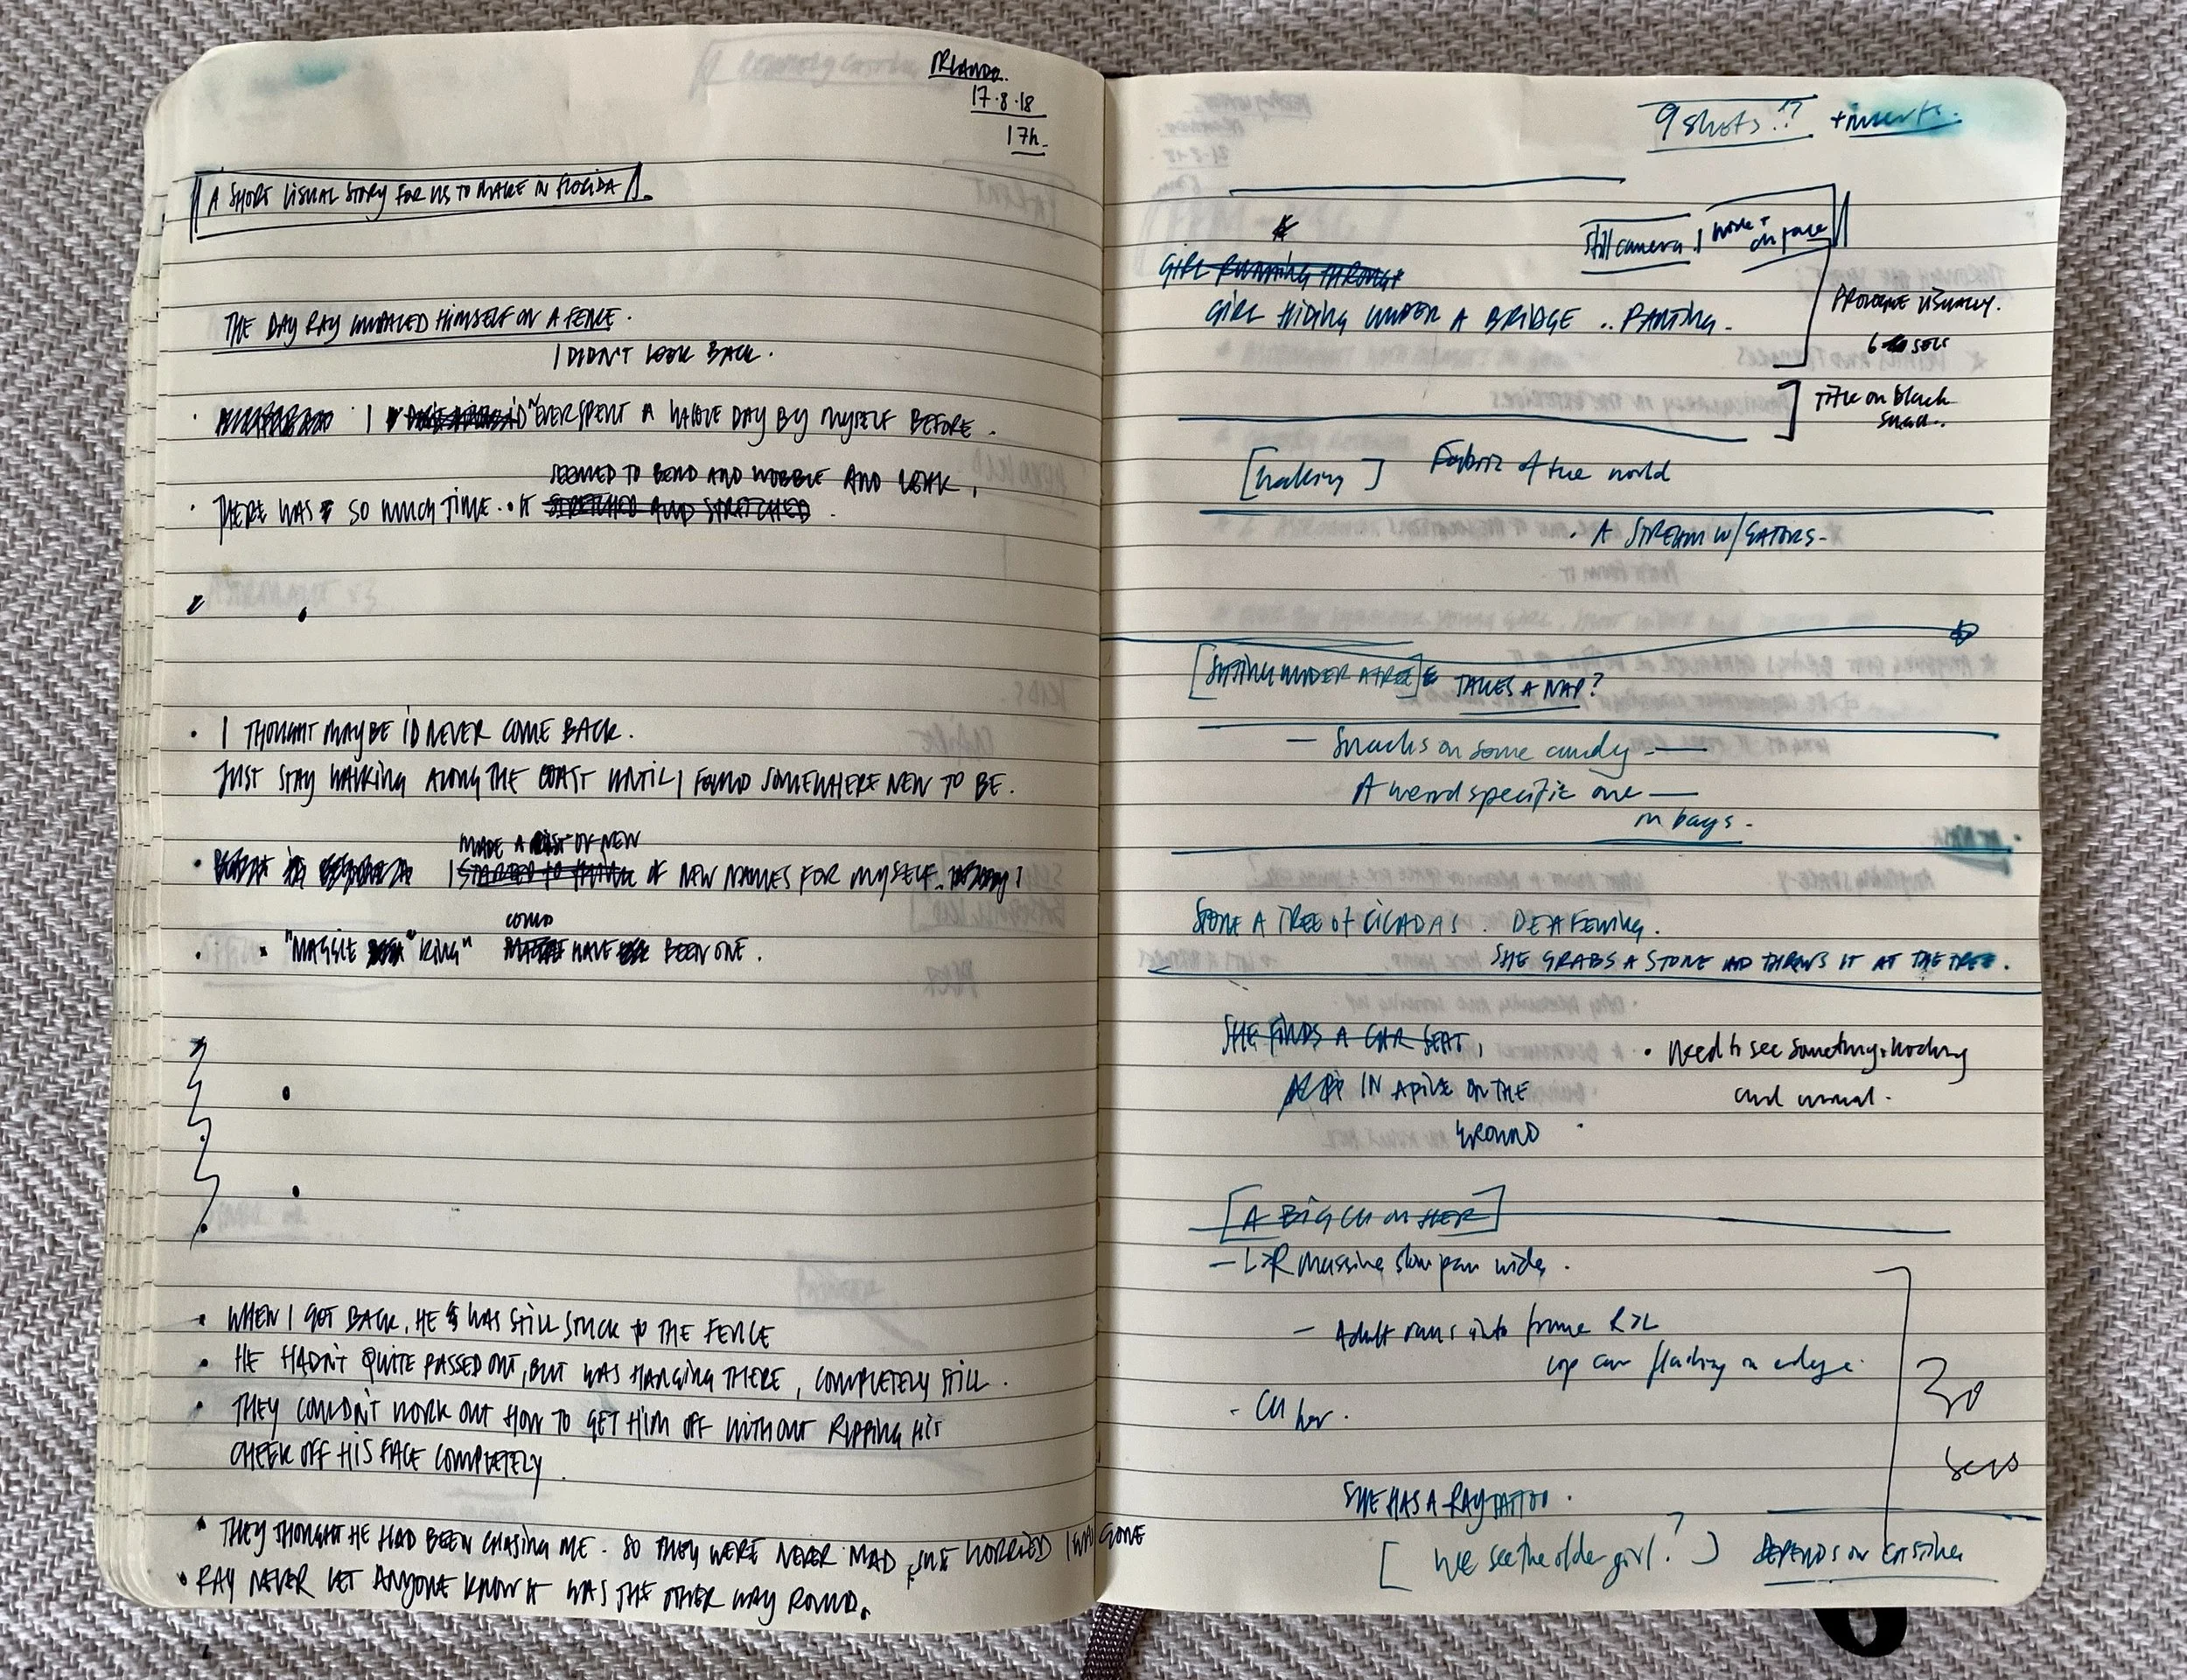 ORLANDO.
17·8·18
17h.
A SHORT VISUAL STORY FOR US TO MAKE IN FLORIDA.
THE DAY RAY IMPALED HIMSELF ON A FENCE.
I DIDN'T LOOK BACK.
· I I'D EVER SPENT A WHOLE DAY BY MYSELF BEFORE.
SEEMED TO BEND AND WOBBLE AND LEAK.
· THERE WAS SO MUCH TIME. IT STRETCHED AND STRETCHED.
· I THOUGHT MAYBE I'D NEVER COME BACK.
JUST STAY WALKING ALONG THE COAST UNTIL I FOUND SOMEWHERE NEW TO BE.
MADE A LIST OF NEW
· I STARTED TO THINK OF NEW NAMES FOR MYSELF.
COULD
· "MAGGIE KING" HAVE BEEN ONE.
· WHEN I GOT BACK, HE WAS STILL STUCK TO THE FENCE
· HE HADN'T QUITE PASSED OUT, BUT WAS HANGING THERE, COMPLETELY STILL.
· THEY COULDN'T WORK OUT HOW TO GET HIM OFF WITHOUT RIPPING HIS
CHEEK OFF HIS FACE COMPLETELY.
· THEY THOUGHT HE HAD BEEN CHASING ME. SO THEY WERE NEVER MAD, JUST WORRIED I WAS GONE
· RAY NEVER LET ANYONE KNOW IT WAS THE OTHER WAY ROUND.
9 shots!? + inserts.
Still camera
on face
GIRL RUNNING THROUGH
GIRL HIDING UNDER A BRIDGE .. PANTING.
PROLOGUE VISUALLY.
6 secs
Title on black
[walking] Fabric of the world
· A STREAM W/GATORS-
[SITTING UNDER A TREE] TAKES A NAP?
— Snacks on some candy —
A weird specific one —
in bags.
STONE A TREE OF CICADAS. DEAFENING.
SHE GRABS A STONE AND THROWS IT AT THE TREE.
SHE FINDS A CAR SEAT,
IN A PILE ON THE
GROUND
· Need to see something shocking
and unusual.
[A BIG CU ON HER]
— L>R massive slow pan wide.
— Adult runs into frame R>L
cop car flashing on edge.
- CU her.
30
secs
SHE HAS A RAY TATTOO.
[We see the older girl?] DEPENDS ON CASTING